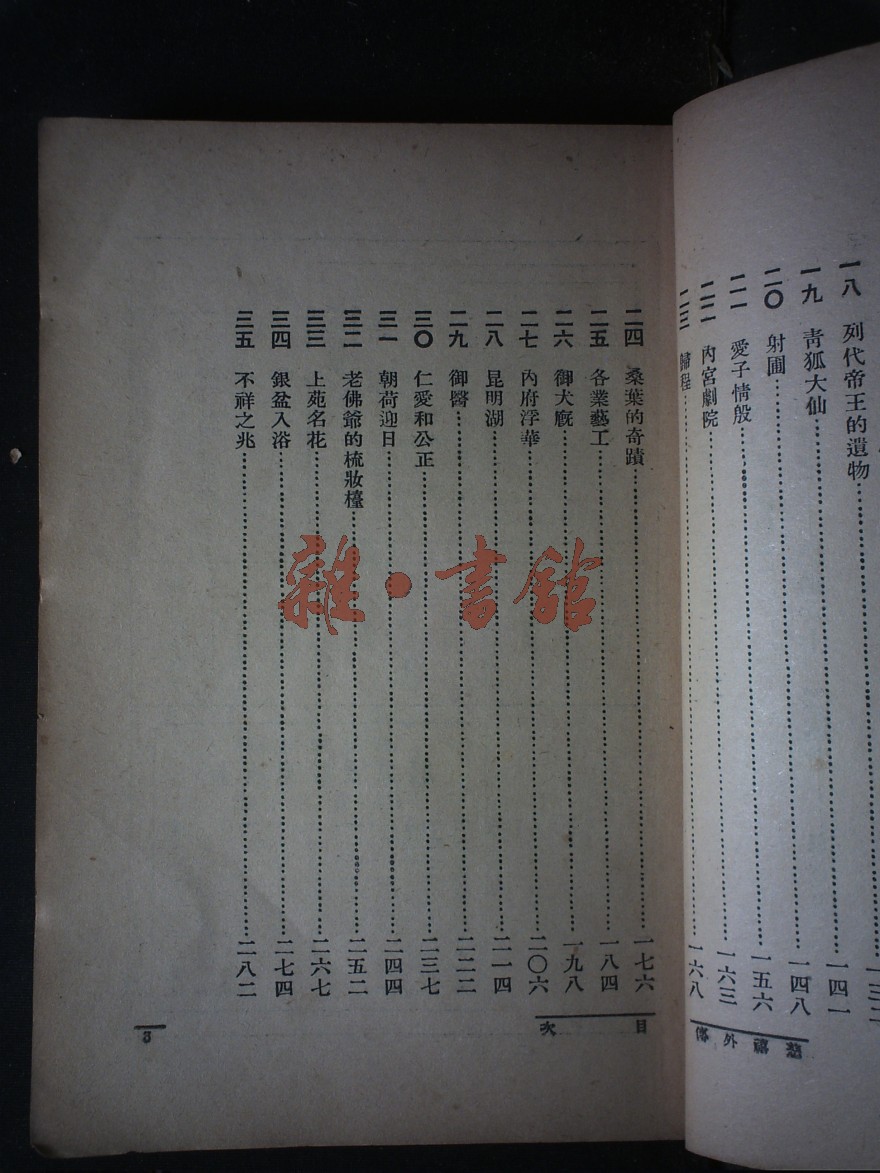 一八　列代帝王的遺物………一三二
一九　青狐大仙………一四一
二〇　射圃………一四八
二一　愛子情殷………一五六
二二　內宮劇院………一六三
二三　歸程………一六八
慈禧外傳
二四　桑葉的奇蹟………一七六
二五　各業藝工………一八四
二六　御犬廐………一九八
二七　內府浮華………二〇六
二八　昆明湖………二一四
二九　御醫………二二二
三〇　仁愛和公正………二三七
三一　朝荷迎日………二四四
三二　老佛爺的梳妝檯………二五二
三三　上苑名花………二六七
三四　銀盆入浴………二七四
三五　不祥之兆………二八二
目次
3
雜·書館